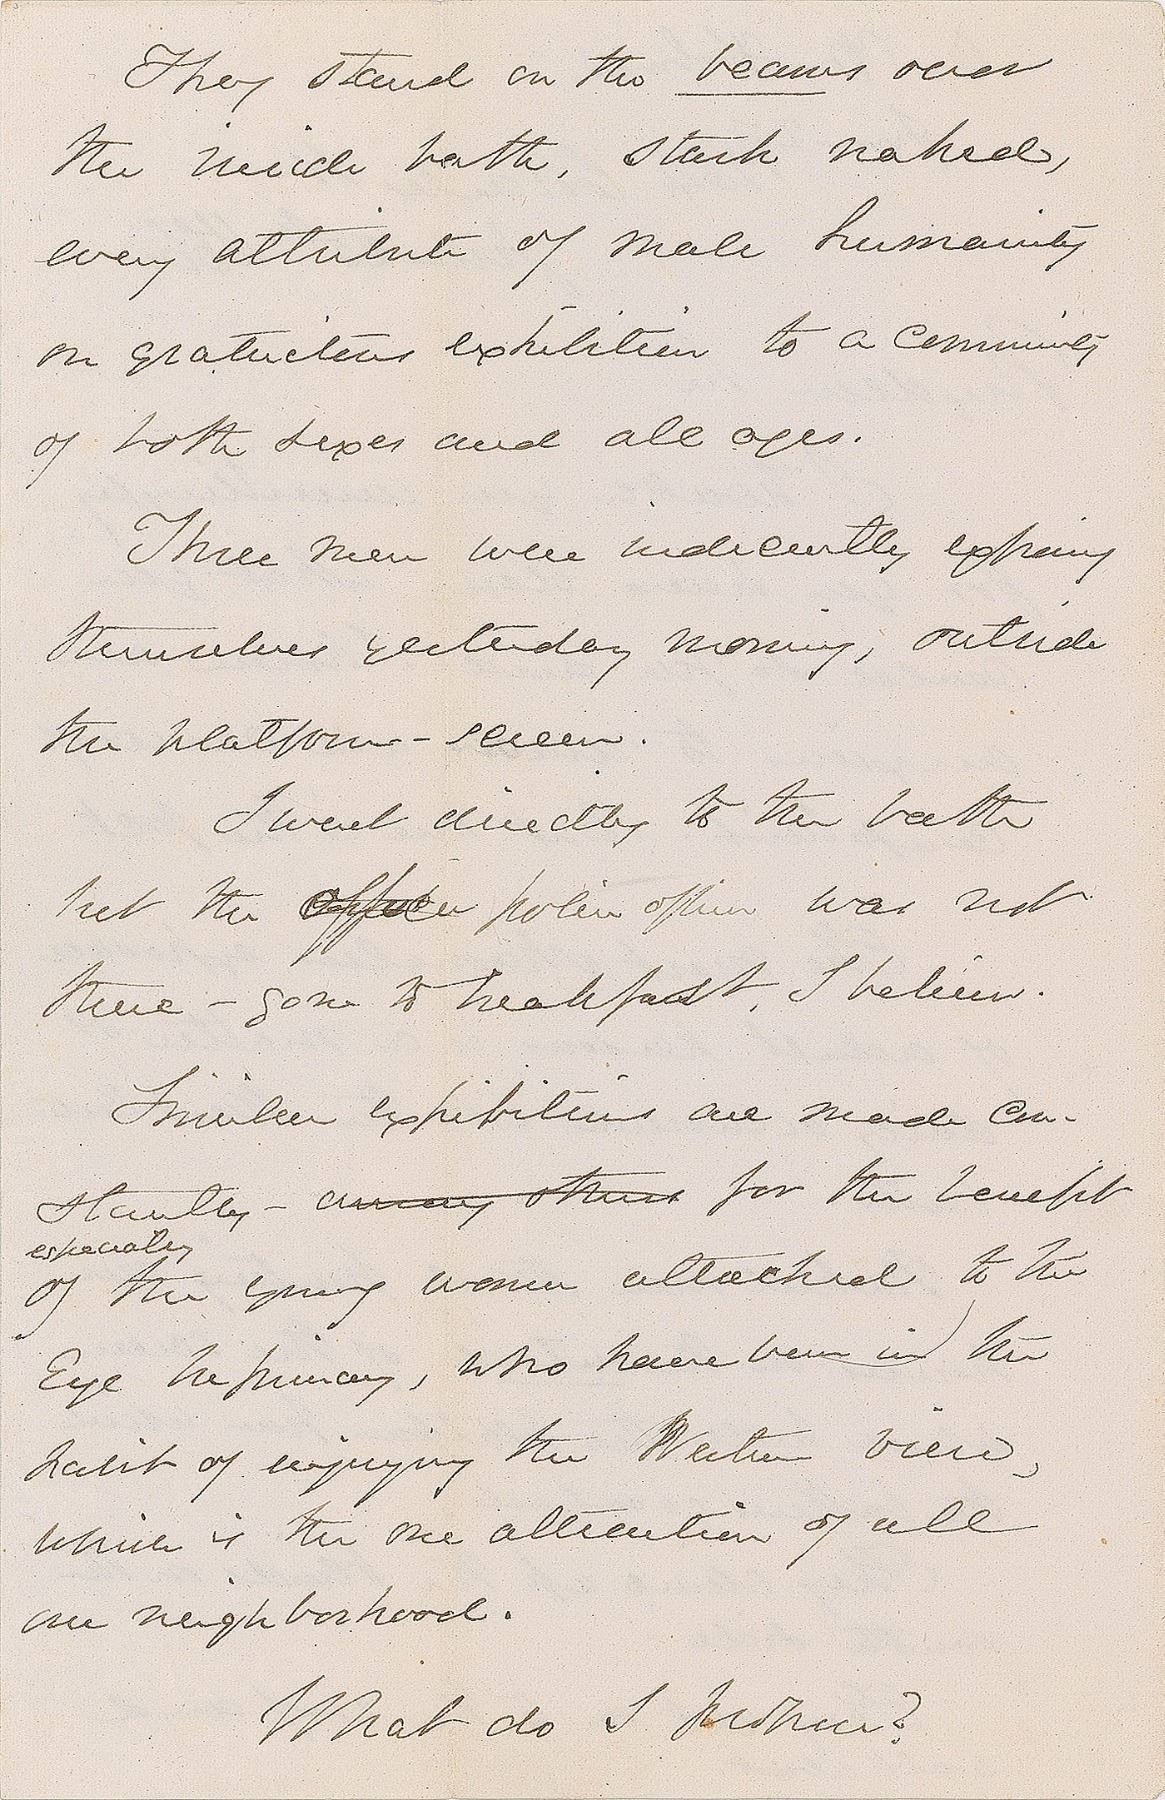 They stand on the beams over
the inside bath, stark naked,
every attribute of male humanity
on gratuitous exhibition to a community
of both sexes and all ages.
Three men were indecently exposing
themselves yesterday morning, outside
the platform-screen.
I went directly to the bath
but the officer police officer was not
there – gone to breakfast, I believe.
Similar exhibitions are made con-
stantly – among others for the benefit
especially
of the young women attached to the
Eye Infirmary, who have been in the
habit of enjoying the Western view,
which is the one attraction of all
our neighborhood.
What do I propose?